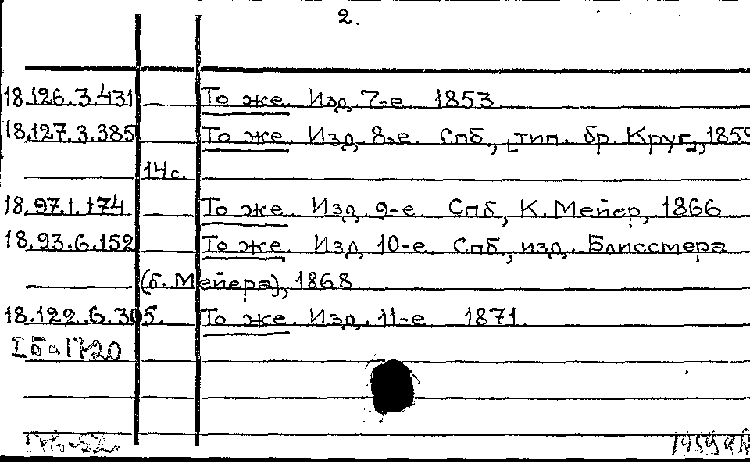 2.
18.126.3.431 То же. Изд. 7-е. 1853
18.127.3.385 То же. Изд. 8-е. Спб., [тип. бр. Круг], 185
14 с.
18.97.1.174 То же. Изд. 9-е. Спб., К. Мейер, 1866
18.93.6.152 То же. Изд. 10-е. Спб., изд. Блиссмера
(б. Мейера), 1868
18.122.6.305. То же. Изд. 11-е. 1871.